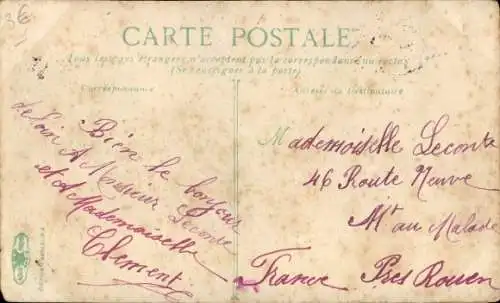 3€
CARTE POSTALE
Tous les pays étrangers n'acceptent pas la correspondance au recto
(Se renseigner à la poste)
Correspondance
Adresse du Destinataire
Bien le bonjour
de loin A Monsieur Leconte
et A Mademoiselle
Clement
Mademoiselle Leconte
46 Route Neuve
Mt au Malade
Près Rouen
France